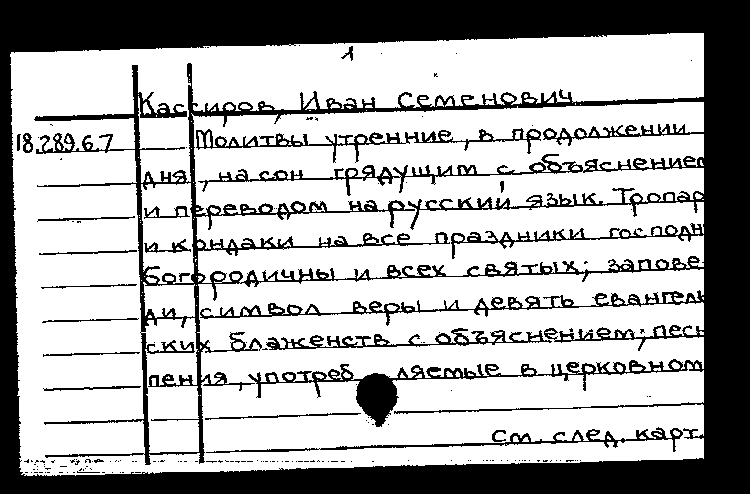 1
Кассиров, Иван Семенович
18.289.6.7 Молитвы утренние, в продолжении
дня, на сон грядущим с объяснением
и переводом на русский язык. Тропар
и кондаки на все праздники господн
богородичны и всех святых; запове-
ди, символ веры и девять евангель
ских блаженств с объяснением; песь
пения, употребляемые в церковном
См. след. карт.